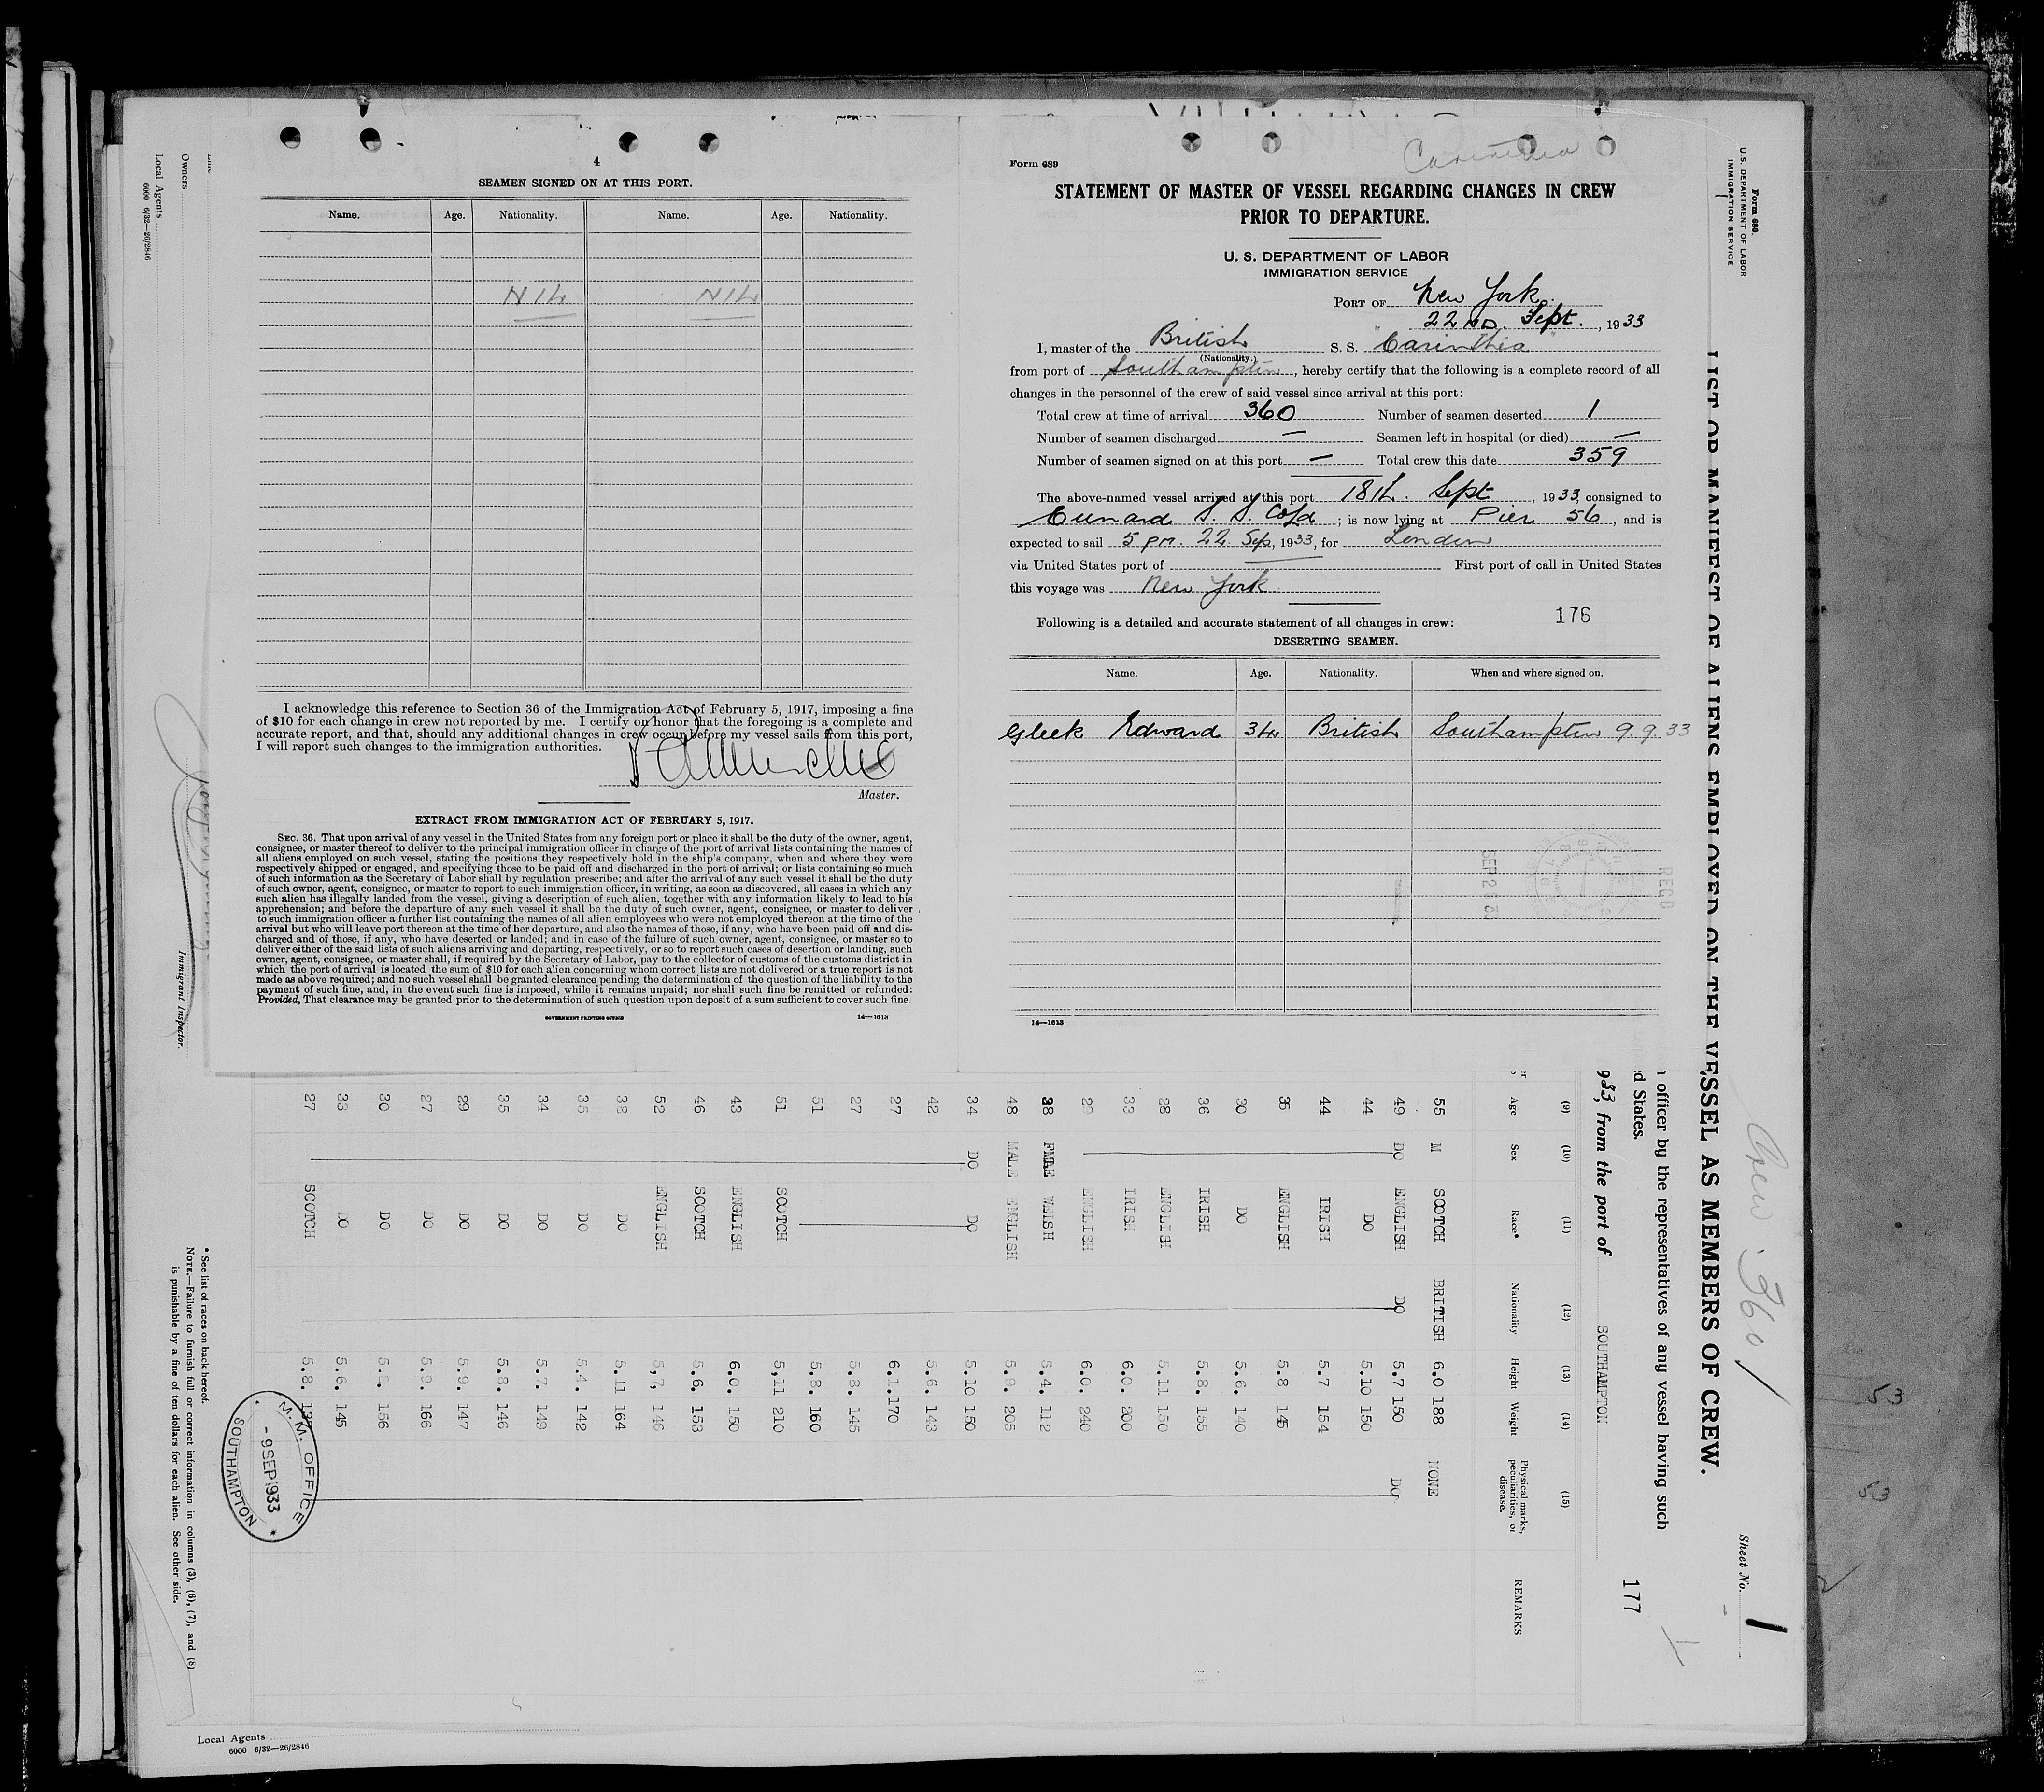 4
SEAMEN SIGNED ON AT THIS PORT.
Name. Age. Nationality. Name. Age. Nationality.
NIL NIL
I acknowledge this reference to Section 36 of the Immigration Act of February 5, 1917, imposing a fine
of $10 for each change in crew not reported by me. I certify on honor that the foregoing is a complete and
accurate report, and that, should any additional changes in crew occur before my vessel sails from this port,
I will report such changes to the immigration authorities.
Master.
EXTRACT FROM IMMIGRATION ACT OF FEBRUARY 5, 1917.
SEC. 36. That upon arrival of any vessel in the United States from any foreign port or place it shall be the duty of the owner, agent,
consignee, or master thereof to deliver to the principal immigration officer in charge of the port of arrival lists containing the names of
all aliens employed on such vessel, stating the positions they respectively hold in the ship's company, when and where they were
respectively shipped or engaged, and specifying those to be paid off and discharged in the port of arrival; or lists containing so much
of such information as the Secretary of Labor shall by regulation prescribe; and after the arrival of any such vessel it shall be the duty
of such owner, agent, consignee, or master to report to such immigration officer, in writing, as soon as discovered, all cases in which any
such alien has illegally landed from the vessel, giving a description of such alien, together with any information likely to lead to his
apprehension; and before the departure of any such vessel it shall be the duty of such owner, agent, consignee, or master to deliver
to such immigration officer a further list containing the names of all alien employees who were not employed thereon at the time of the
arrival but who will leave port thereon at the time of her departure, and also the names of those, if any, who have been paid off and dis-
charged and of those, if any, who have deserted or landed; and in case of the failure of such owner, agent, consignee, or master so to
deliver either of the said lists of such aliens arriving and departing, respectively, or so to report such cases of desertion or landing, such
owner, agent, consignee, or master shall, if required by the Secretary of Labor, pay to the collector of customs of the customs district in
which the port of arrival is located the sum of $10 for each alien concerning whom correct lists are not delivered or a true report is not
made as above required; and no such vessel shall be granted clearance pending the determination of the question of the liability to the
payment of such fine, and, in the event such fine is imposed, while it remains unpaid; nor shall such fine be remitted or refunded:
Provided, That clearance may be granted prior to the determination of such question upon deposit of a sum sufficient to cover such fine.
GOVERNMENT PRINTING OFFICE 14—1613
Carinthia
Form 689
STATEMENT OF MASTER OF VESSEL REGARDING CHANGES IN CREW
PRIOR TO DEPARTURE.
U. S. DEPARTMENT OF LABOR
IMMIGRATION SERVICE
PORT OF New York.
22ND. Sept., 1933
I, master of the British S. S. "Carinthia"
(Nationality.)
from port of Southampton, hereby certify that the following is a complete record of all
changes in the personnel of the crew of said vessel since arrival at this port:
Total crew at time of arrival 360 Number of seamen deserted 1
Number of seamen discharged — Seamen left in hospital (or died) —
Number of seamen signed on at this port — Total crew this date 359
The above-named vessel arrived at this port 18th. Sept, 1933, consigned to
Cunard S. S. CoLd; is now lying at Pier 56, and is
expected to sail 5 pm. 22 Sep, 1933, for London
via United States port of — First port of call in United States
this voyage was New York
Following is a detailed and accurate statement of all changes in crew: 176
DESERTING SEAMEN.
Name. Age. Nationality. When and where signed on.
Gleek Edward 34 British Southampton 9.9.33
REC'D
SEP 23 33
14—1613
Form 680.
U.S. DEPARTMENT OF LABOR
IMMIGRATION SERVICE
Crew. 360
Sheet No. 1
LIST OR MANIFEST OF ALIENS EMPLOYED ON THE VESSEL AS MEMBERS OF CREW.
officer by the representatives of any vessel having such
d States.
177
933, from the port of SOUTHAMPTON
(9) (10) (11) (12) (13) (14) (15)
Age Sex Race* Nationality Height Weight Physical marks, peculiarities, or disease. REMARKS
55 M SCOTCH BRITISH 6.0 188 NONE
49 DO ENGLISH DO 5.7 150 DO
44 DO 5.10 150
44 IRISH 5.7 154
35 ENGLISH 5.8 145
30 DO 5.6. 140
36 IRISH 5.8. 155
28 ENGLISH 5.11 150
33 IRISH 6.0. 200
29 ENGLISH 6.0. 240
38 FMAE WELSH 5.4. 112
48 MALE ENGLISH 5.9. 205
34 DO DO 5.10 150
42 5.6. 143
27 6.1. 170
27 5.8. 145
51 5.8. 160
51 SCOTCH 5,11 210
43 ENGLISH 6.0. 150
46 SCOTCH 5.6. 153
52 ENGLISH 5,7, 146
38 DO 5.11 164
35 DO 5.4. 142
34 DO 5.7. 149
35 DO 5.8. 146
29 DO 5.9. 147
27 DO 5.9. 166
30 DO 156
33 DO 5.6. 145
27 SCOTCH 5.8.
M. M. OFFICE
-9 SEP 1933
SOUTHAMPTON
* See list of races on back hereof.
NOTE.—Failure to furnish full or correct information in columns (3), (6), (7), and (8)
is punishable by a fine of ten dollars for each alien. See other side.
Immigrant Inspector.
Owners
Local Agents
6000 6/32—26/2846
Local Agents
6000 6/32—26/2846
53
53